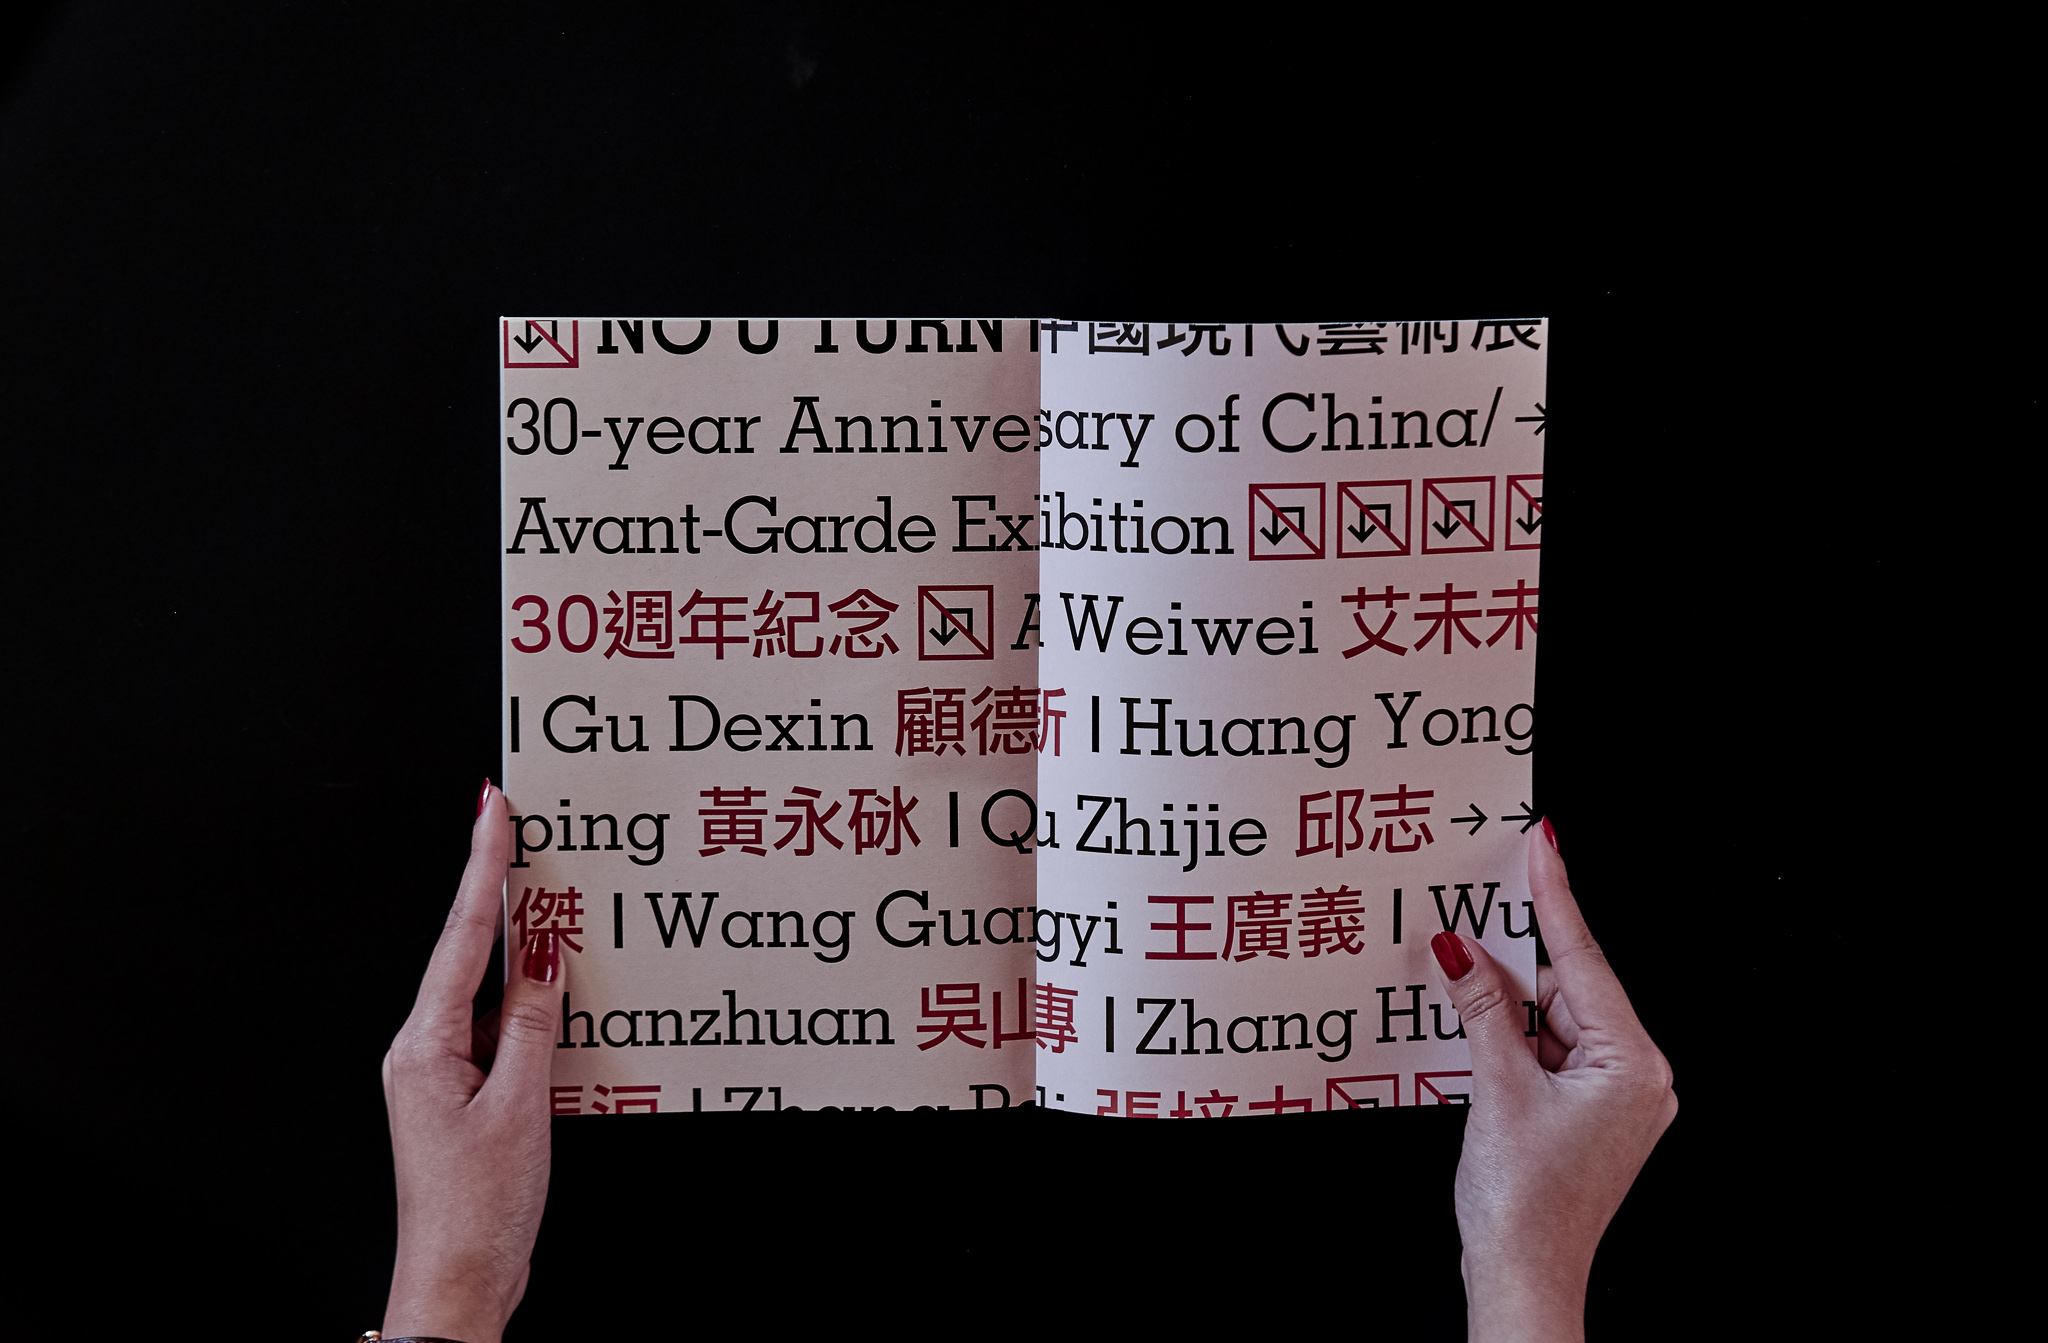 NO U TURN 中國現代藝術展
30-year Anniversary of China/ →
Avant-Garde Exhibition
30週年紀念 A Weiwei 艾未未
| Gu Dexin 顧德新 | Huang Yong
ping 黃永砯 | Qu Zhijie 邱志 → →
傑 | Wang Guangyi 王廣義 | Wu
hanzhuan 吳山專 | Zhang Hu
| Zhang P